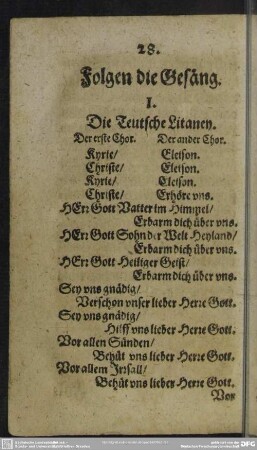 28.
Folgen die Gesäng.
I.
Die Teutsche Litaney.
Der erste Chor. Der ander Chor.
Kyrie/ Eleison.
Christe/ Eleison.
Kyrie/ Eleison.
Christe/ Erhöre vns.
HErr Gott Vatter im Himmel/
Erbarm dich über vns.
HErr Gott Sohn der Welt Heyland/
Erbarm dich über vns.
HErr Gott Heiliger Geist/
Erbarm dich über vns.
Sey vns gnädig/
Verschon vnser lieber Herre Gott.
Sey vns gnädig/
Hilff vns lieber Herre Gott.
Vor allen Sünden/
Behüt vns lieber Herre Gott.
Vor allem Irrsall/
Behüt vns lieber Herre Gott.
Vor